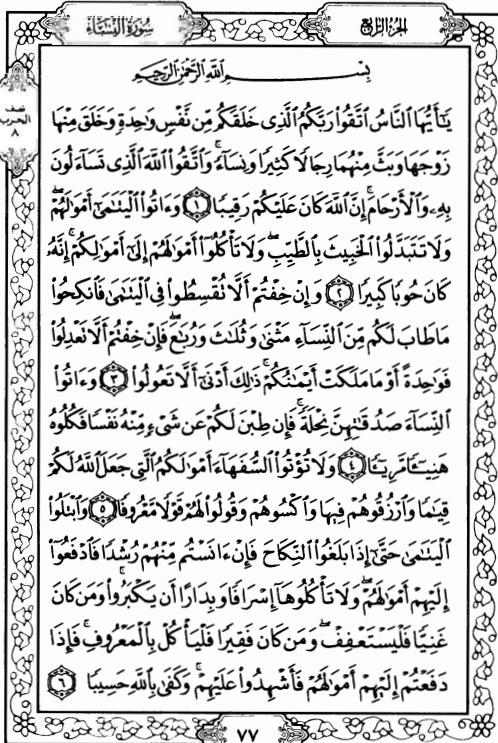 سُورَةُ النِّسَاءِ
الجزء الرابع
بِسْمِ اللَّهِ الرَّحْمَٰنِ الرَّحِيمِ
نصف
الحزب
٨
يَٰٓأَيُّهَا ٱلنَّاسُ ٱتَّقُوا۟ رَبَّكُمُ ٱلَّذِى خَلَقَكُم مِّن نَّفْسٍ وَٰحِدَةٍ وَخَلَقَ مِنْهَا
زَوْجَهَا وَبَثَّ مِنْهُمَا رِجَالًا كَثِيرًا وَنِسَآءً ۚ وَٱتَّقُوا۟ ٱللَّهَ ٱلَّذِى تَسَآءَلُونَ
بِهِۦ وَٱلْأَرْحَامَ ۚ إِنَّ ٱللَّهَ كَانَ عَلَيْكُمْ رَقِيبًا ١ وَءَاتُوا۟ ٱلْيَتَٰمَىٰٓ أَمْوَٰلَهُمْ ۖ
وَلَا تَتَبَدَّلُوا۟ ٱلْخَبِيثَ بِٱلطَّيِّبِ ۖ وَلَا تَأْكُلُوٓا۟ أَمْوَٰلَهُمْ إِلَىٰٓ أَمْوَٰلِكُمْ ۚ إِنَّهُۥ
كَانَ حُوبًا كَبِيرًا ٢ وَإِنْ خِفْتُمْ أَلَّا تُقْسِطُوا۟ فِى ٱلْيَتَٰمَىٰ فَٱنكِحُوا۟
مَا طَابَ لَكُم مِّنَ ٱلنِّسَآءِ مَثْنَىٰ وَثُلَٰثَ وَرُبَٰعَ ۖ فَإِنْ خِفْتُمْ أَلَّا تَعْدِلُوا۟
فَوَٰحِدَةً أَوْ مَا مَلَكَتْ أَيْمَٰنُكُمْ ۚ ذَٰلِكَ أَدْنَىٰٓ أَلَّا تَعُولُوا۟ ٣ وَءَاتُوا۟
ٱلنِّسَآءَ صَدُقَٰتِهِنَّ نِحْلَةً ۚ فَإِن طِبْنَ لَكُمْ عَن شَىْءٍ مِّنْهُ نَفْسًا فَكُلُوهُ
هَنِيٓـًٔا مَّرِيٓـًٔا ٤ وَلَا تُؤْتُوا۟ ٱلسُّفَهَآءَ أَمْوَٰلَكُمُ ٱلَّتِى جَعَلَ ٱللَّهُ لَكُمْ
قِيَٰمًا وَٱرْزُقُوهُمْ فِيهَا وَٱكْسُوهُمْ وَقُولُوا۟ لَهُمْ قَوْلًا مَّعْرُوفًا ٥ وَٱبْتَلُوا۟
ٱلْيَتَٰمَىٰ حَتَّىٰٓ إِذَا بَلَغُوا۟ ٱلنِّكَاحَ فَإِنْ ءَانَسْتُم مِّنْهُمْ رُشْدًا فَٱدْفَعُوٓا۟
إِلَيْهِمْ أَمْوَٰلَهُمْ ۖ وَلَا تَأْكُلُوهَآ إِسْرَافًا وَبِدَارًا أَن يَكْبَرُوا۟ ۚ وَمَن كَانَ
غَنِيًّا فَلْيَسْتَعْفِفْ ۖ وَمَن كَانَ فَقِيرًا فَلْيَأْكُلْ بِٱلْمَعْرُوفِ ۚ فَإِذَا
دَفَعْتُمْ إِلَيْهِمْ أَمْوَٰلَهُمْ فَأَشْهِدُوا۟ عَلَيْهِمْ ۚ وَكَفَىٰ بِٱللَّهِ حَسِيبًا ٦
٧٧